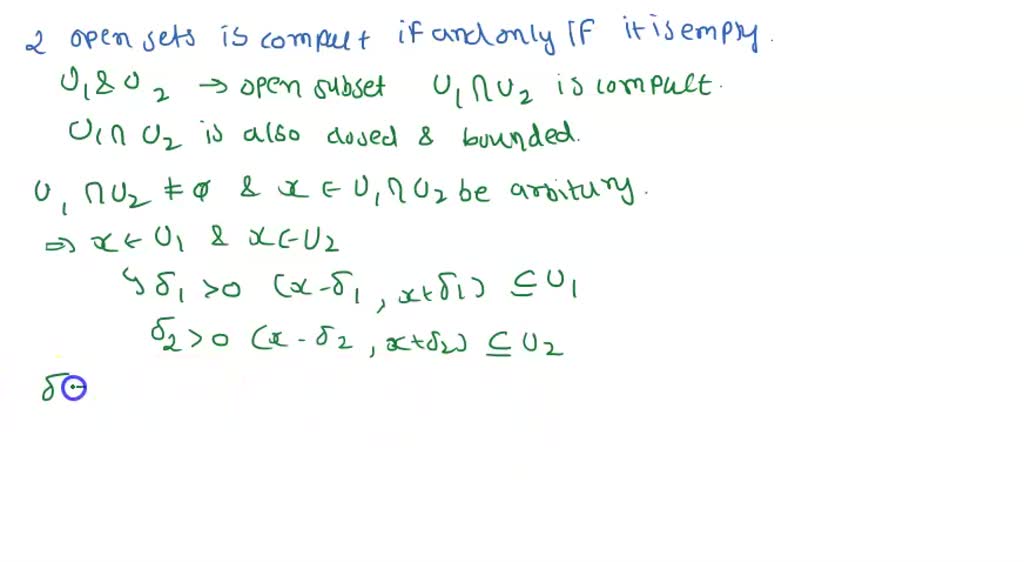 2 open sets is compult if and only if it is empry.
U1 & U2 → open subset U1 ∩ U2 is compult.
U1 ∩ U2 is also closed & bounded.
U1 ∩ U2 ≠ φ & x ∈ U1 ∩ U2 be arbitury.
⇒ x ∈ U1 & x ∈ U2
↳ δ1 > 0 (x - δ1, x + δ1) ⊆ U1
δ2 > 0 (x - δ2, x + δ2) ⊆ U2
δ